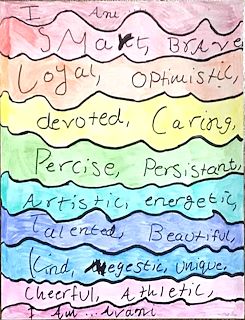 I Am
SMart, BrAve
Loyal, Optimistic,
devoted, Caring,
Percise, Persistant,
Artistic, energetic,
Talented, Beautiful,
Kind, Megestic, unique,
Cheerful, Athletic,
I Am ... Avani